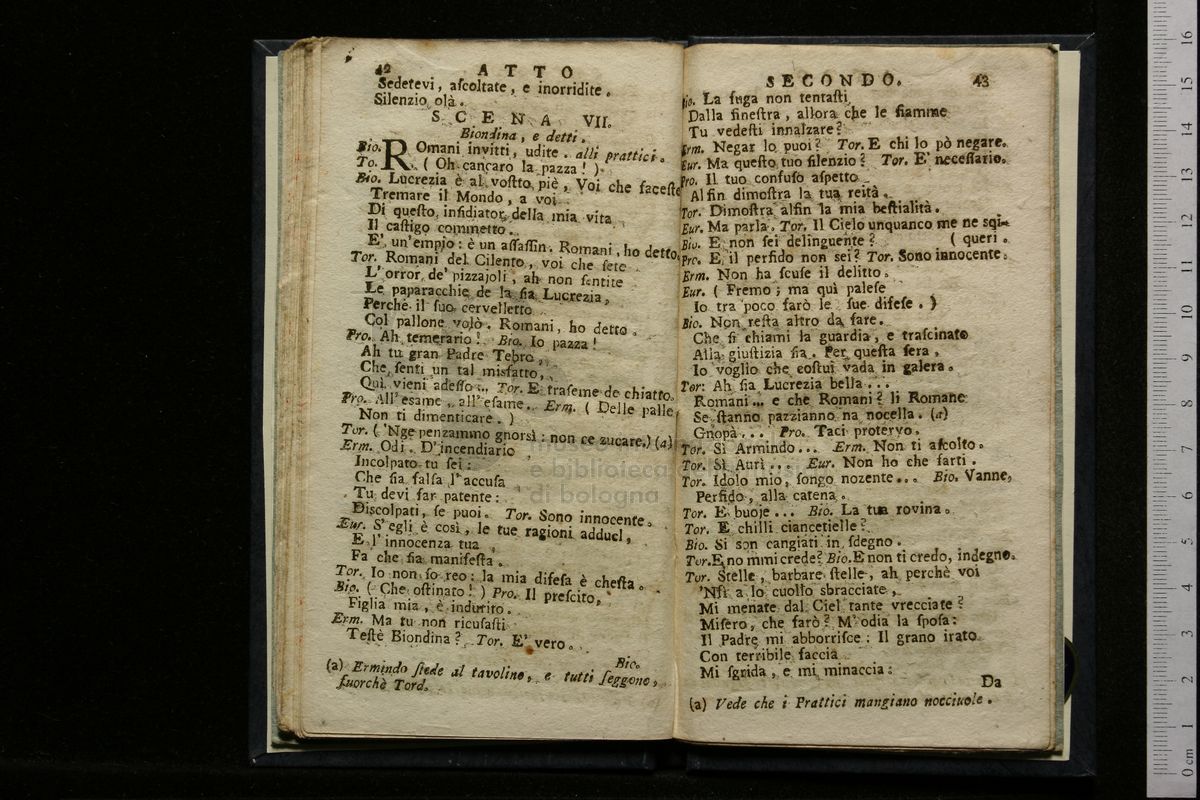 42 ATTO
Sedetevi, aſcoltate, e inorridite.
Silenzio, olà.
SCENA VII.
Biondina, e detti.
Bio. ROmani invitti, udite. alli prattici.
To. (Oh cancaro la pazza!).
Bio. Lucrezia è al voſtto piè, Voi che faceſte
Tremare il Mondo, a voi
Di queſto, inſidiator della mia vita
Il caſtigo commetto.
E' un'empio: è un aſſaſſin. Romani, ho detto.
Tor. Romani del Cilento, voi che ſete
L'orror de' pizzajoli, ah non ſentite
Le paparacchie de la ſia Lucrezia,
Perchè il ſuo cervelletto
Col pallone volò. Romani, ho detto.
Pro. Ah temerario! Bio. Io pazza!
Ah tu gran Padre Tebro,
Che ſenti un tal misfatto,
Quì vieni adeſſo... Tor. E traſeme de chiatto.
Pro. All'eſame, all'eſame. Erm. (Delle palle
Non ti dimenticare.)
Tor. ('Nge penzammo gnorsì: non ce zucare.) (a)
Erm. Odi. D'incendiario
Incolpato tu ſei:
Che ſia falſa l'accuſa
Tu devi far patente:
Diſcolpati, ſe puoi. Tor. Sono innocente.
Eur. S'egli è così, le tue ragioni adducl,
E l'innocenza tua
Fa che ſia manifeſta.
Tor. Io non ſo reo: la mia difeſa è cheſta.
Bio. (Che oſtinato!) Pro. Il preſcito,
Figlia mia, è indurito.
Erm. Ma tu non ricuſaſti
Teſtè Biondina? Tor. E' vero.
Bio.
(a) Ermindo ſiede al tavolino, e tutti ſeggono,
fuorchè Tord.
SECONDO. 43
Bio. La fuga non tentaſti
Dalla fineſtra, allora che le fiamme
Tu vedeſti innalzare?
Erm. Negar lo puoi? Tor. E chi lo pò negare.
Eur. Ma queſto tuo ſilenzio? Tor. E' neceſſario.
Pro. Il tuo confuſo aſpetto
Alfin dimoſtra la tua reità.
Tor. Dimoſtra alfin la mia beſtialità.
Eur. Ma parla. Tor. Il Cielo unquanco me ne sqi-
Bio. E non ſei delinquente? (queri.
Pro. E il perfido non sei? Tor. Sono innocente.
Erm. Non ha ſcuſe il delitto.
Eur. (Fremo; ma quì paleſe
Io tra poco farò le ſue difeſe.)
Bio. Non reſta altro da fare.
Che ſi chiami la guardia, e traſcinato
Alla giuſtizia ſia. Per queſta ſera,
Io voglio che coſtui vada in galera.
Tor: Ah ſia Lucrezia bella...
Romani... e che Romani? li Romane
Se ſtanno pazzianno na nocella. (a)
Gnopà... Pro. Taci protervo.
Tor. Sì Armindo... Erm. Non ti aſcolto.
Tor. Sì Aurì... Eur. Non ho che farti.
Tor. Idolo mio, ſongo nozente... Bio. Vanne,
Perfido, alla catena.
Tor. E buoje... Bio. La tua rovina.
Tor. E chilli ciancetielle?
Bio. Si son cangiati in ſdegno.
Tor. E no mmi crede? Bio. E non ti credo, indegno.
Tor. Stelle, barbare ſtelle, ah perchè voi
'Nſi a lo cuollo sbracciate,
Mi menate dal Ciel tante vrecciate?
Miſero, che farò? M'odia la ſpoſa:
Il Padre mi abborriſce: Il grano irato
Con terribile faccia
Mi ſgrida, e mi minaccia:
Da
(a) Vede che i Prattici mangiano nocciuole.
museo
e biblioteca
di bologna
0 cm 1 2 3 4 5 6 7 8 9 10 11 12 13 14 15 16